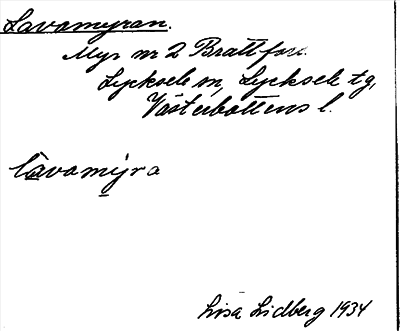 Lavamyran.
Myr nr 2 Brattfors.
Lycksele sn, Lycksele tg,
Västerbottens l.
lavamyra
Lisa Lidberg 1934